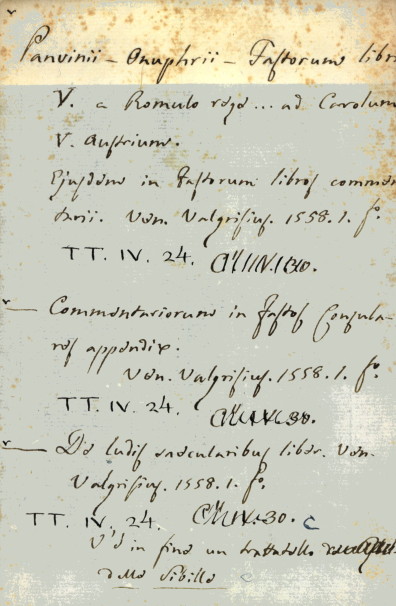 Panvinii - Onuphrii - Fastorum libri
V. a Romulo rege... ad Carolum
V. Austrium.
Ejusdem in Fastorum libros commen
tarii. Ven. Valgrisius. 1558. 1. fo.
TT. IV. 24.
Commentariorum in Fastos Consula-
res appendix.
Ven. Valgrisius. 1558. 1. fo.
TT. IV. 24. CM.IV.30.
De ludis saecularibus liber. Ven.
Valgrisius. 1558. 1. fo.
TT. IV. 24. CM.IV.30. c
V'è in fine un trattatello
delle Sibille